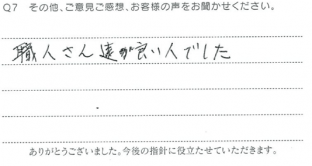 Q7 その他、ご意見ご感想、お客様の声をお聞かせください。
職人さん達が良い人でした
ありがとうございました。今後の指針に役立たせていただきます。